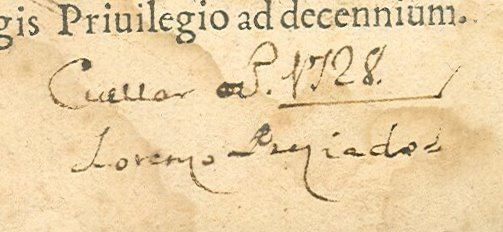 gis Priuilegio ad decennium.
Cuellar P. 1728.
Lorenzo